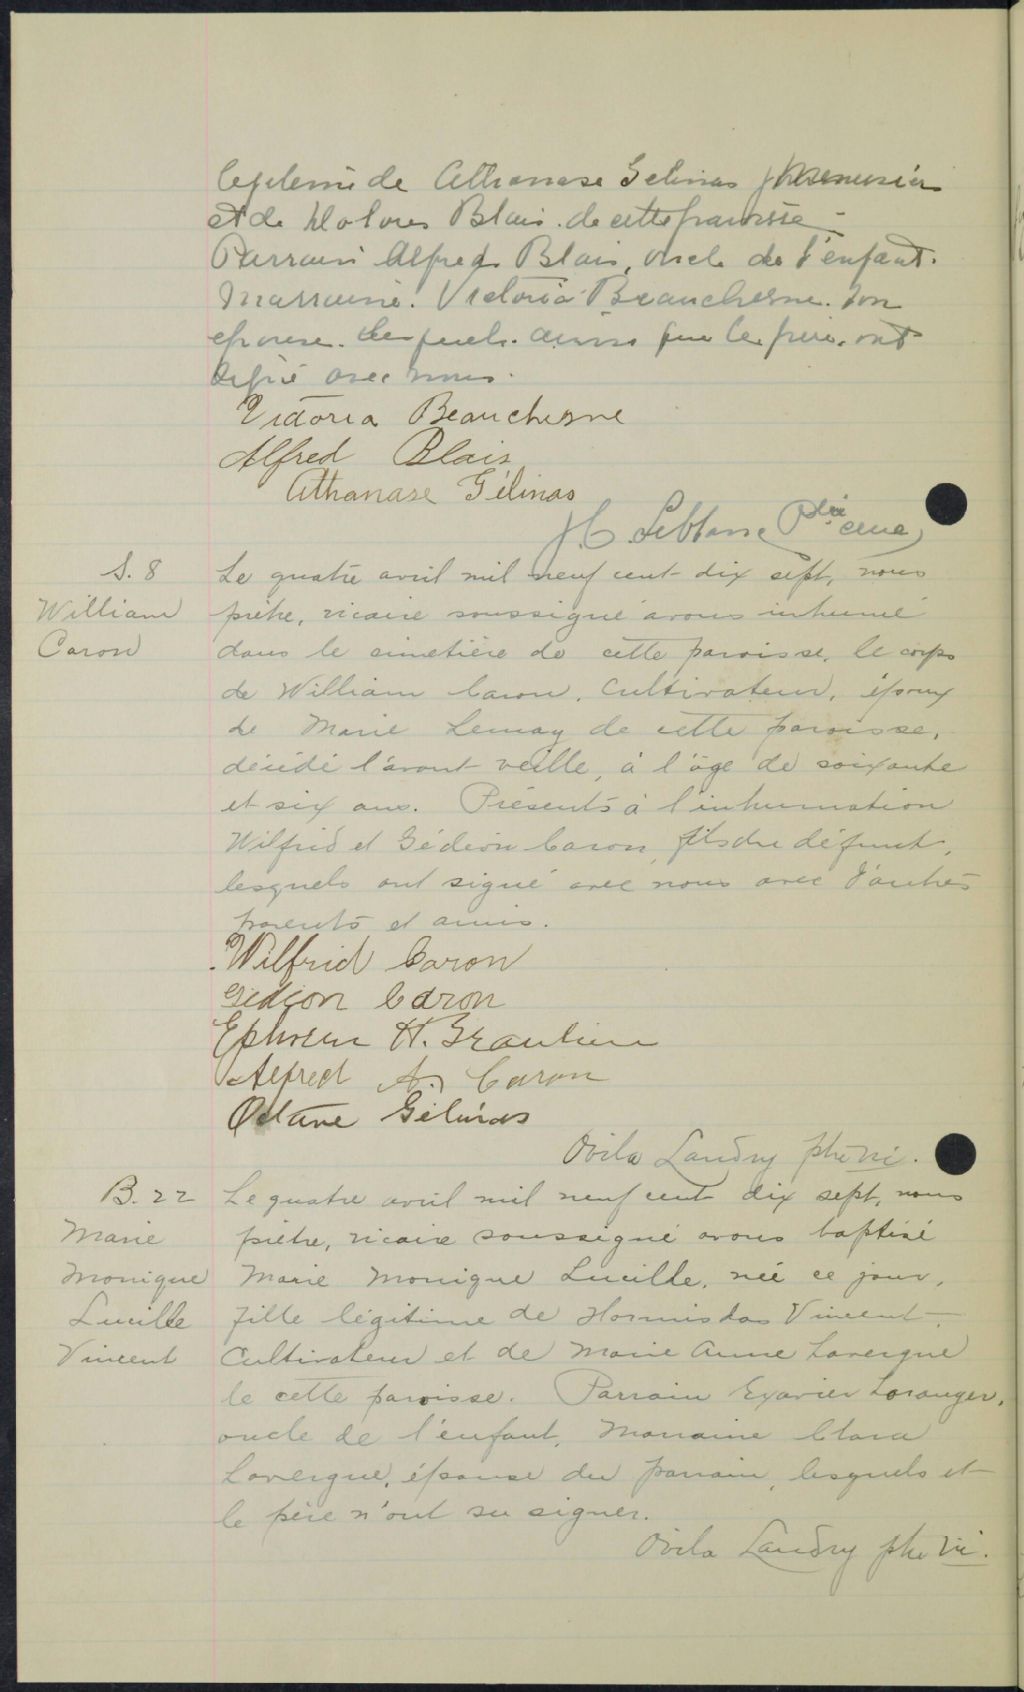 légitime de Athanase Gelinas Menuisier
et de Dolores Blais de cette paroisse
Parrain Alfred Blais, oncle de l'enfant.
Marraine. Victoria Beauchesne. son
epouse. lesquels. ainsi que le père, ont
signé avec nous.
Victoria Beauchesne
Alfred Blais
Athanase Gélinas
J.C. Leblanc Ptre curé
S. 8
William
Caron
Le quatre avril mil neuf cent dix sept, nous
prêtre, vicaire soussigné avons inhumé
dans le cimetière de cette paroisse, le corps
de William Caron, Cultivateur, époux
de Marie Lemay de cette paroisse,
décédé l'avant veille, à l'âge de soixante
et six ans. Présents à l'inhumation
Wilfrid et Gédéon Caron, fils du défunt,
lesquels ont signé avec nous avec d'autres
parents et amis.
Wilfrid Caron
Gédéon Caron
Ephrem H.
Alfred A. Caron
Octave Gélinas
Ovila Landry ptre vic.
B. 22
Marie
Monique
Lucille
Vincent
Le quatre avril mil neuf cent dix sept, nous
prêtre, vicaire soussigné avons baptisé
Marie Monique Lucille, née ce jour,
fille légitime de Hormisdas Vincent
Cultivateur et de Marie Anne Lavergne
de cette paroisse. Parrain Exavier Loranger,
oncle de l'enfant, Marraine Clara
Lavergne, épouse du parrain, lesquels et
le père n'ont su signer.
Ovila Landry ptre vic.